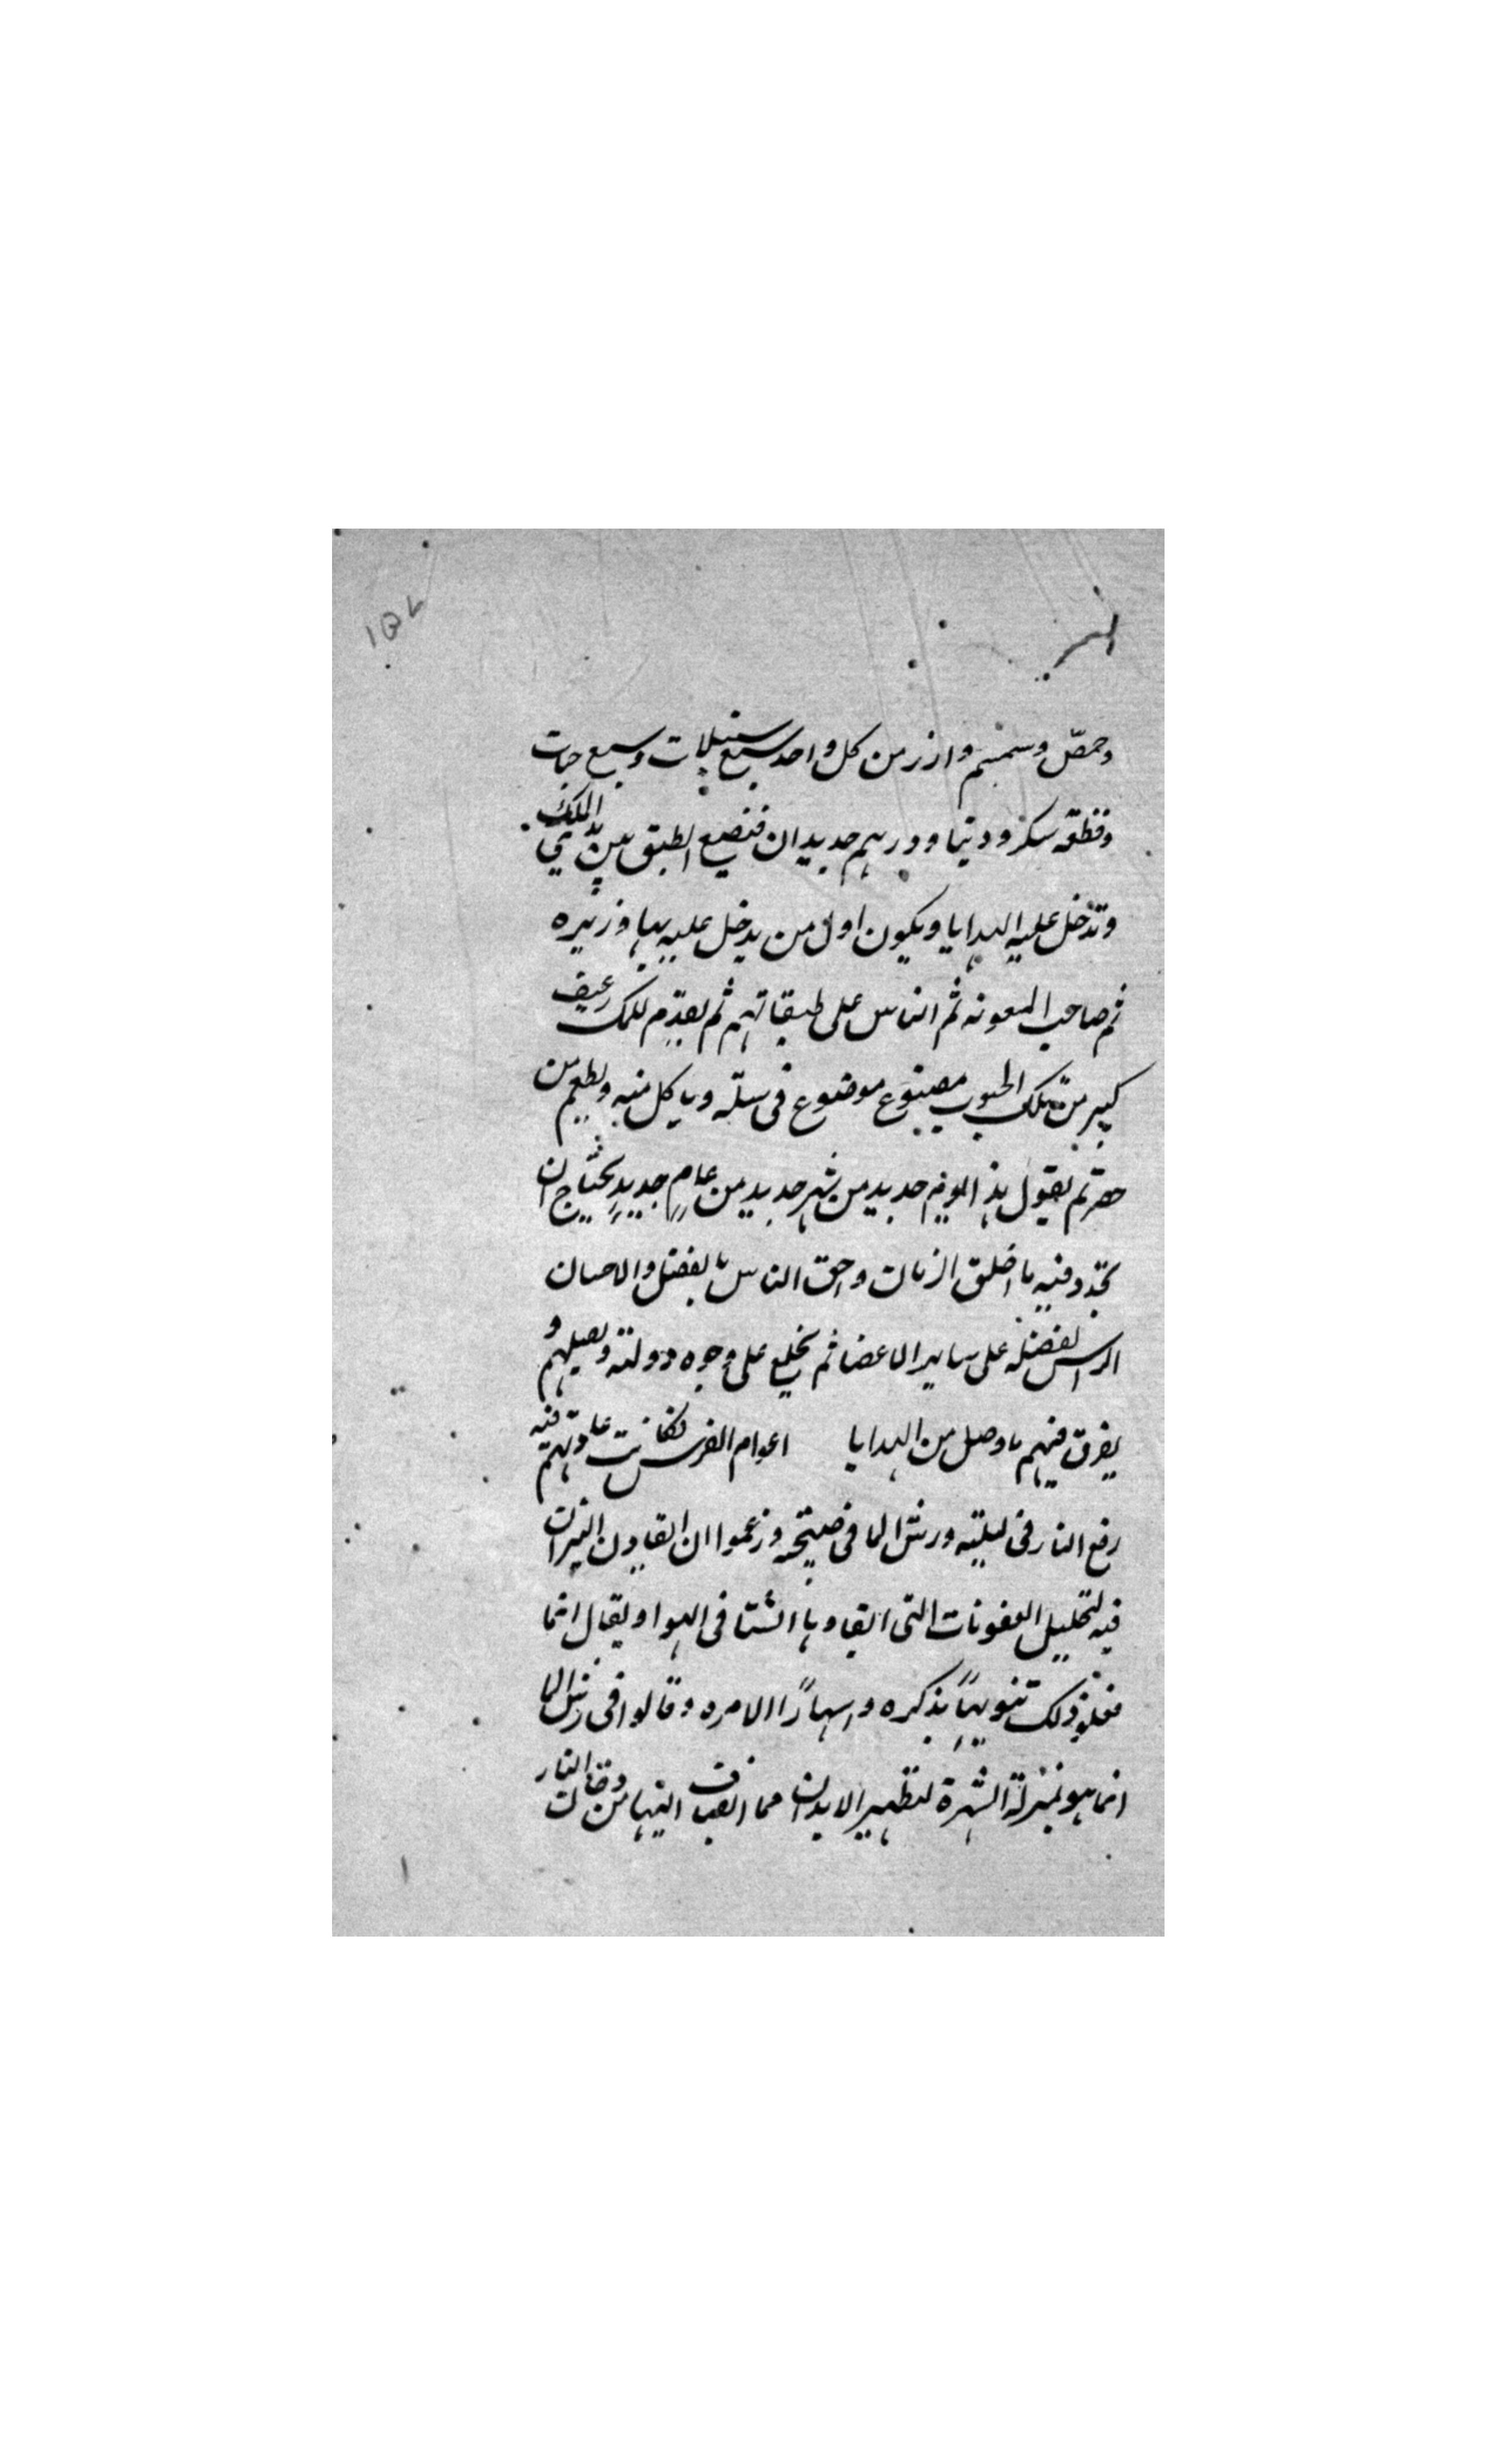 وحمصّ وسمسم وارز من كل واحد سبع سنبلات وسبع حبات
وقطعه سكر ودينا ودرهم جديدان فتضع الطبق بين يدي الملك
وتدخل عليه الهدايا ويكون اول من يدخل عليه بها وزيره
ثم صاحب المعونه ثم الناس على طبقاتهم ثم يقدّم للملك رغيف
كبير من تلك الحبوب مصنوع موضوع في سلّه وياكل منه ويطعم من
حضر ثم يقول هذا يوم جديد من شهر جديد من عامٍ جديدٍ يحتاج ان
يجدد فيه ما اخلق الزمان واحق الناس بالفضل والاحسان
الراس لفضله على ساير الاعضا ثم يخلع على وجوه دولته ويصلهم و
يفرق فيهم ما وصل من الهدايا اعوام الفرس فكانت عادتهم فيه
رفع النار في ليلته ورش الما في صبيحته وزعموا ان ايقادون النيران
فيه لتحليل العفونات التى ابقاها الشتا فى الهوا ويقال انما
فعلوا ذلك تنويهًا بذكره واشهارًا الامره وقالوا فى رش الما
انما هو بمنزلة الشهرة لتطهير الابدان مما انضاف اليها من دخان النار